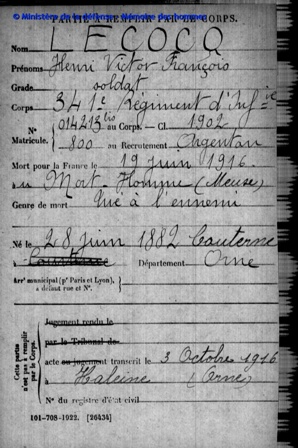 © Ministère de la défense - Mémoire des hommes
PARTIE À REMPLIR PAR LE CORPS.
Nom LECOCQ
Prénoms Henri Victor François
Grade soldat
Corps 341e Régiment d'Infie
N° Matricule. 014213 bis au Corps. — Cl. 1902
800 au Recrutement Argentan
Mort pour la France le 19 juin 1916
à au Mort-Homme (Meuse)
Genre de mort Tué à l'ennemi
Né le 28 juin 1882 Lauterne
à Département Orne
Arrt municipal (pr Paris et Lyon),
à défaut rue et N°.
Cette partie n'est pas à remplir par le Corps.
Jugement rendu le
par le Tribunal de
acte ou jugement transcrit le 3 Octobre 1916
à Haleine (Orne)
N° du registre d'état civil
101-708-1922. [26434]